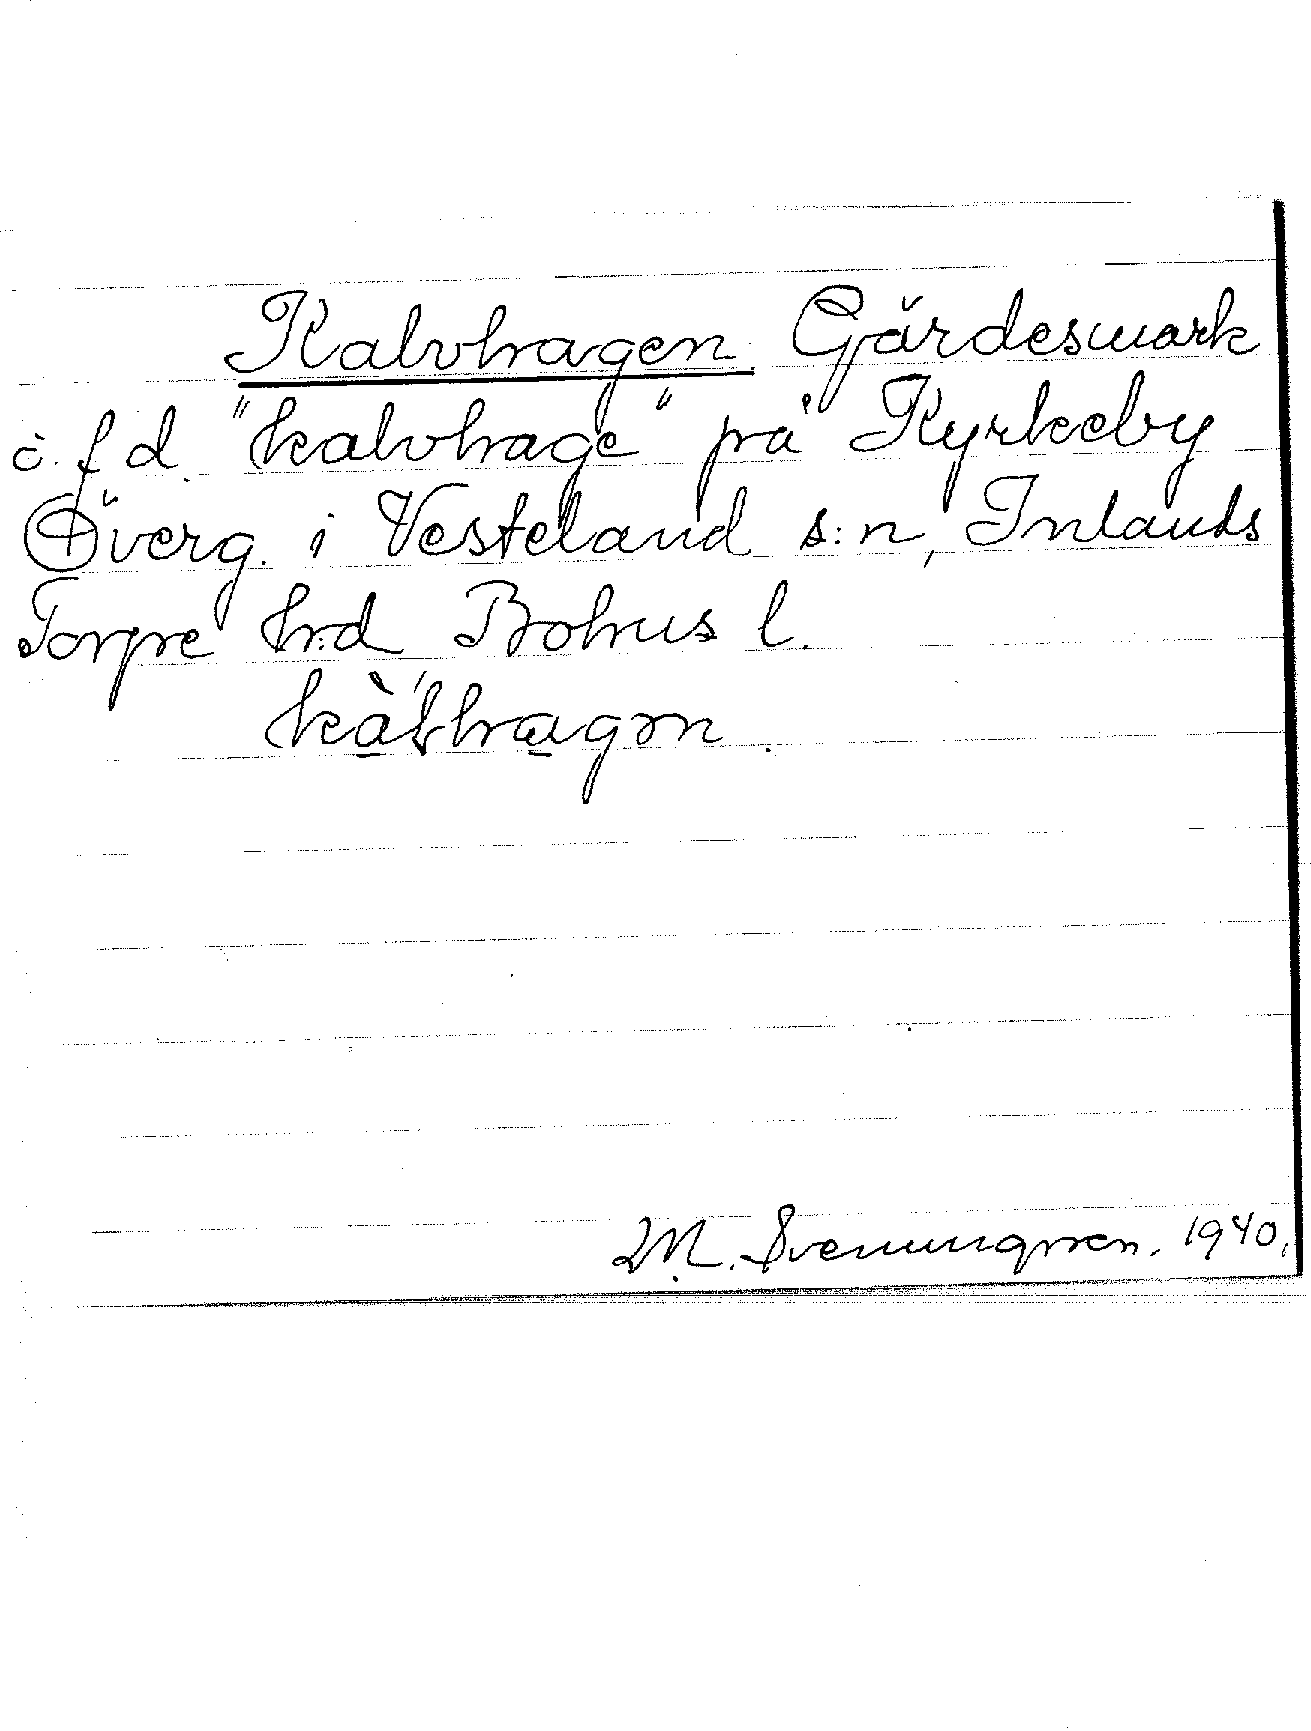 Kalvhagen. Gärdesmark
i. f d. "kalvhage" på Kyrkeby
Överg. i Vesteland s:n, Inlands
Torpe hrd Bohus l.
M. Svenungsson. 1940.